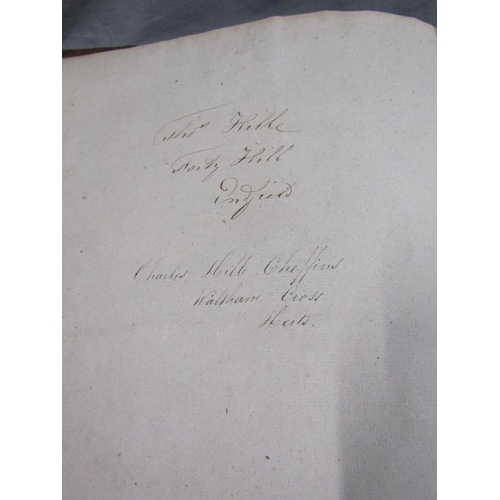 Thos Hill
Forty Hill
Enfield
Charles Hill Cheffins
Waltham Cross
Herts.